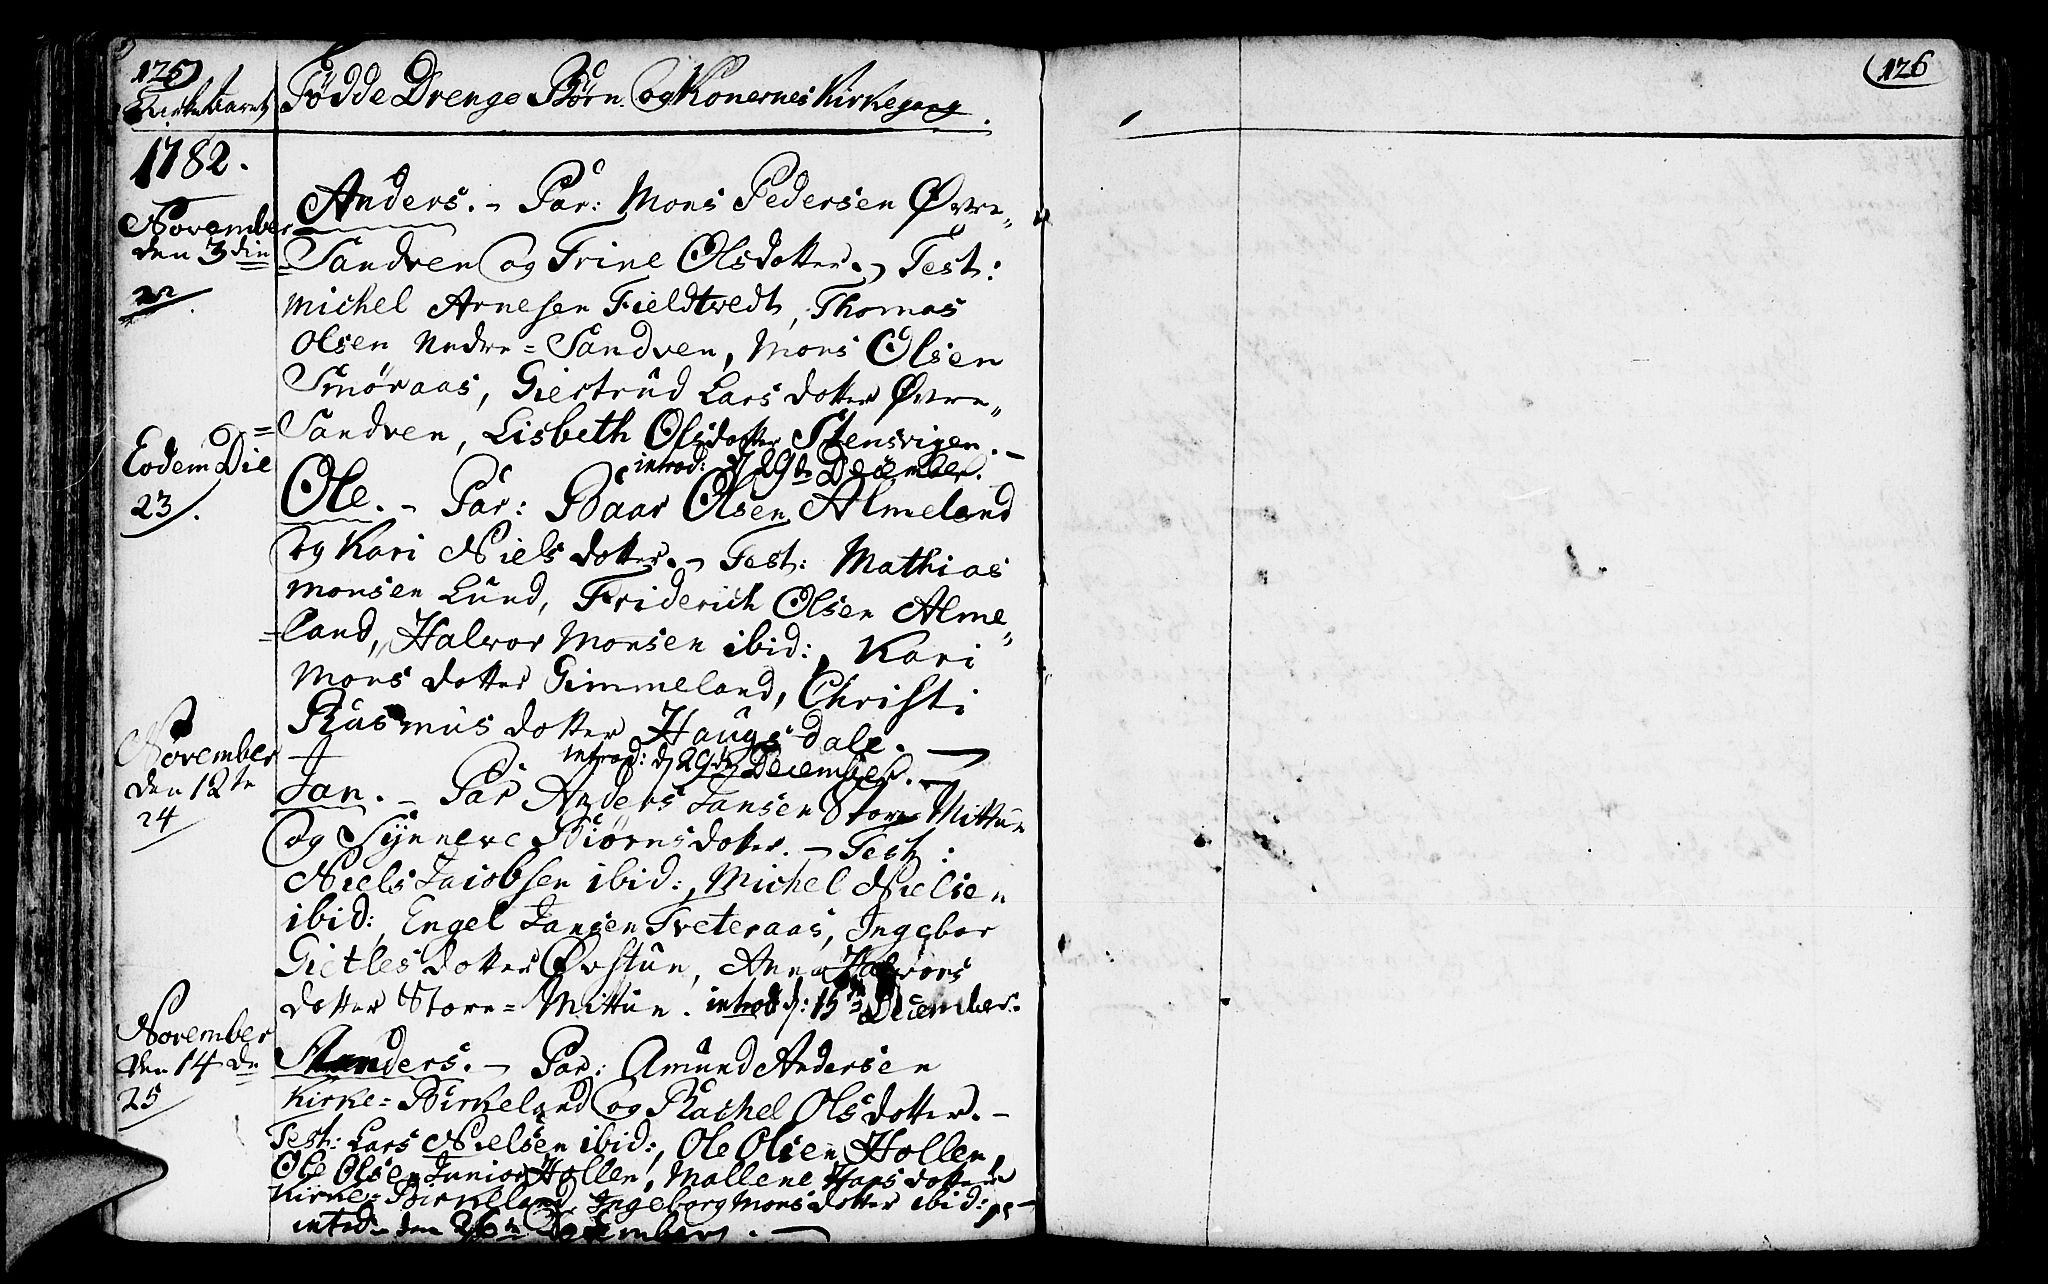 126)
Kirke Aaret
Fødde Drenge Børn. Og Konernes Kirkegang.
1782.
November
den 3die
22.
Anders. - Par: Mons Pedersen Øvre„
=Sandven Og Trine Olsdotter. - Test:
Michel Arnesen Fieldtvedt, Thomas
Olsen Nedre=Sandven, Mons Olsen
Smøraas, Giertrud Larsdotter Øvre„
=Sandven, Lisbeth Olsdotter Stensvigen. -
introd: d 29de December.
Eodem Die
23.
Ole. - Par: Baar Olsen Almeland
Og Kari Nielsdotter. - Test: Mathias
Monsen Lund, Friderich Olsen Alme„
=land, Halvor Monsen ibid:, Kari
Monsdotter Gimmeland, Christi
Rasmusdotter Haugsdale. -
introd: d 29de December. -
November
den 12te
24
Jan. - Par Anders Jansen Store Mittun
Og Synneve Biørnsdotter. - Test:
Niels Jacobsen ibid:, Michel Nielsen
ibid:, Engel Jansen Tveteraas, Ingebor
Gietlesdotter Øvstun, Anna Halvors
dotter Store=Mittun. introd d: 15de December.
November
den 14de
25
Anders. - Par: Amund Andersen
Kirke=Birkeland Og Rachel Olsdotter. -
Test: Lars Nielsen ibid:, Ole Olsen Hollen,
Ole Olsen Junior Hollen, Mallene Hansdotter
Kirke=Birkeland, Ingeborg Monsdotter ibid:
introd: den 26de December. -
(126